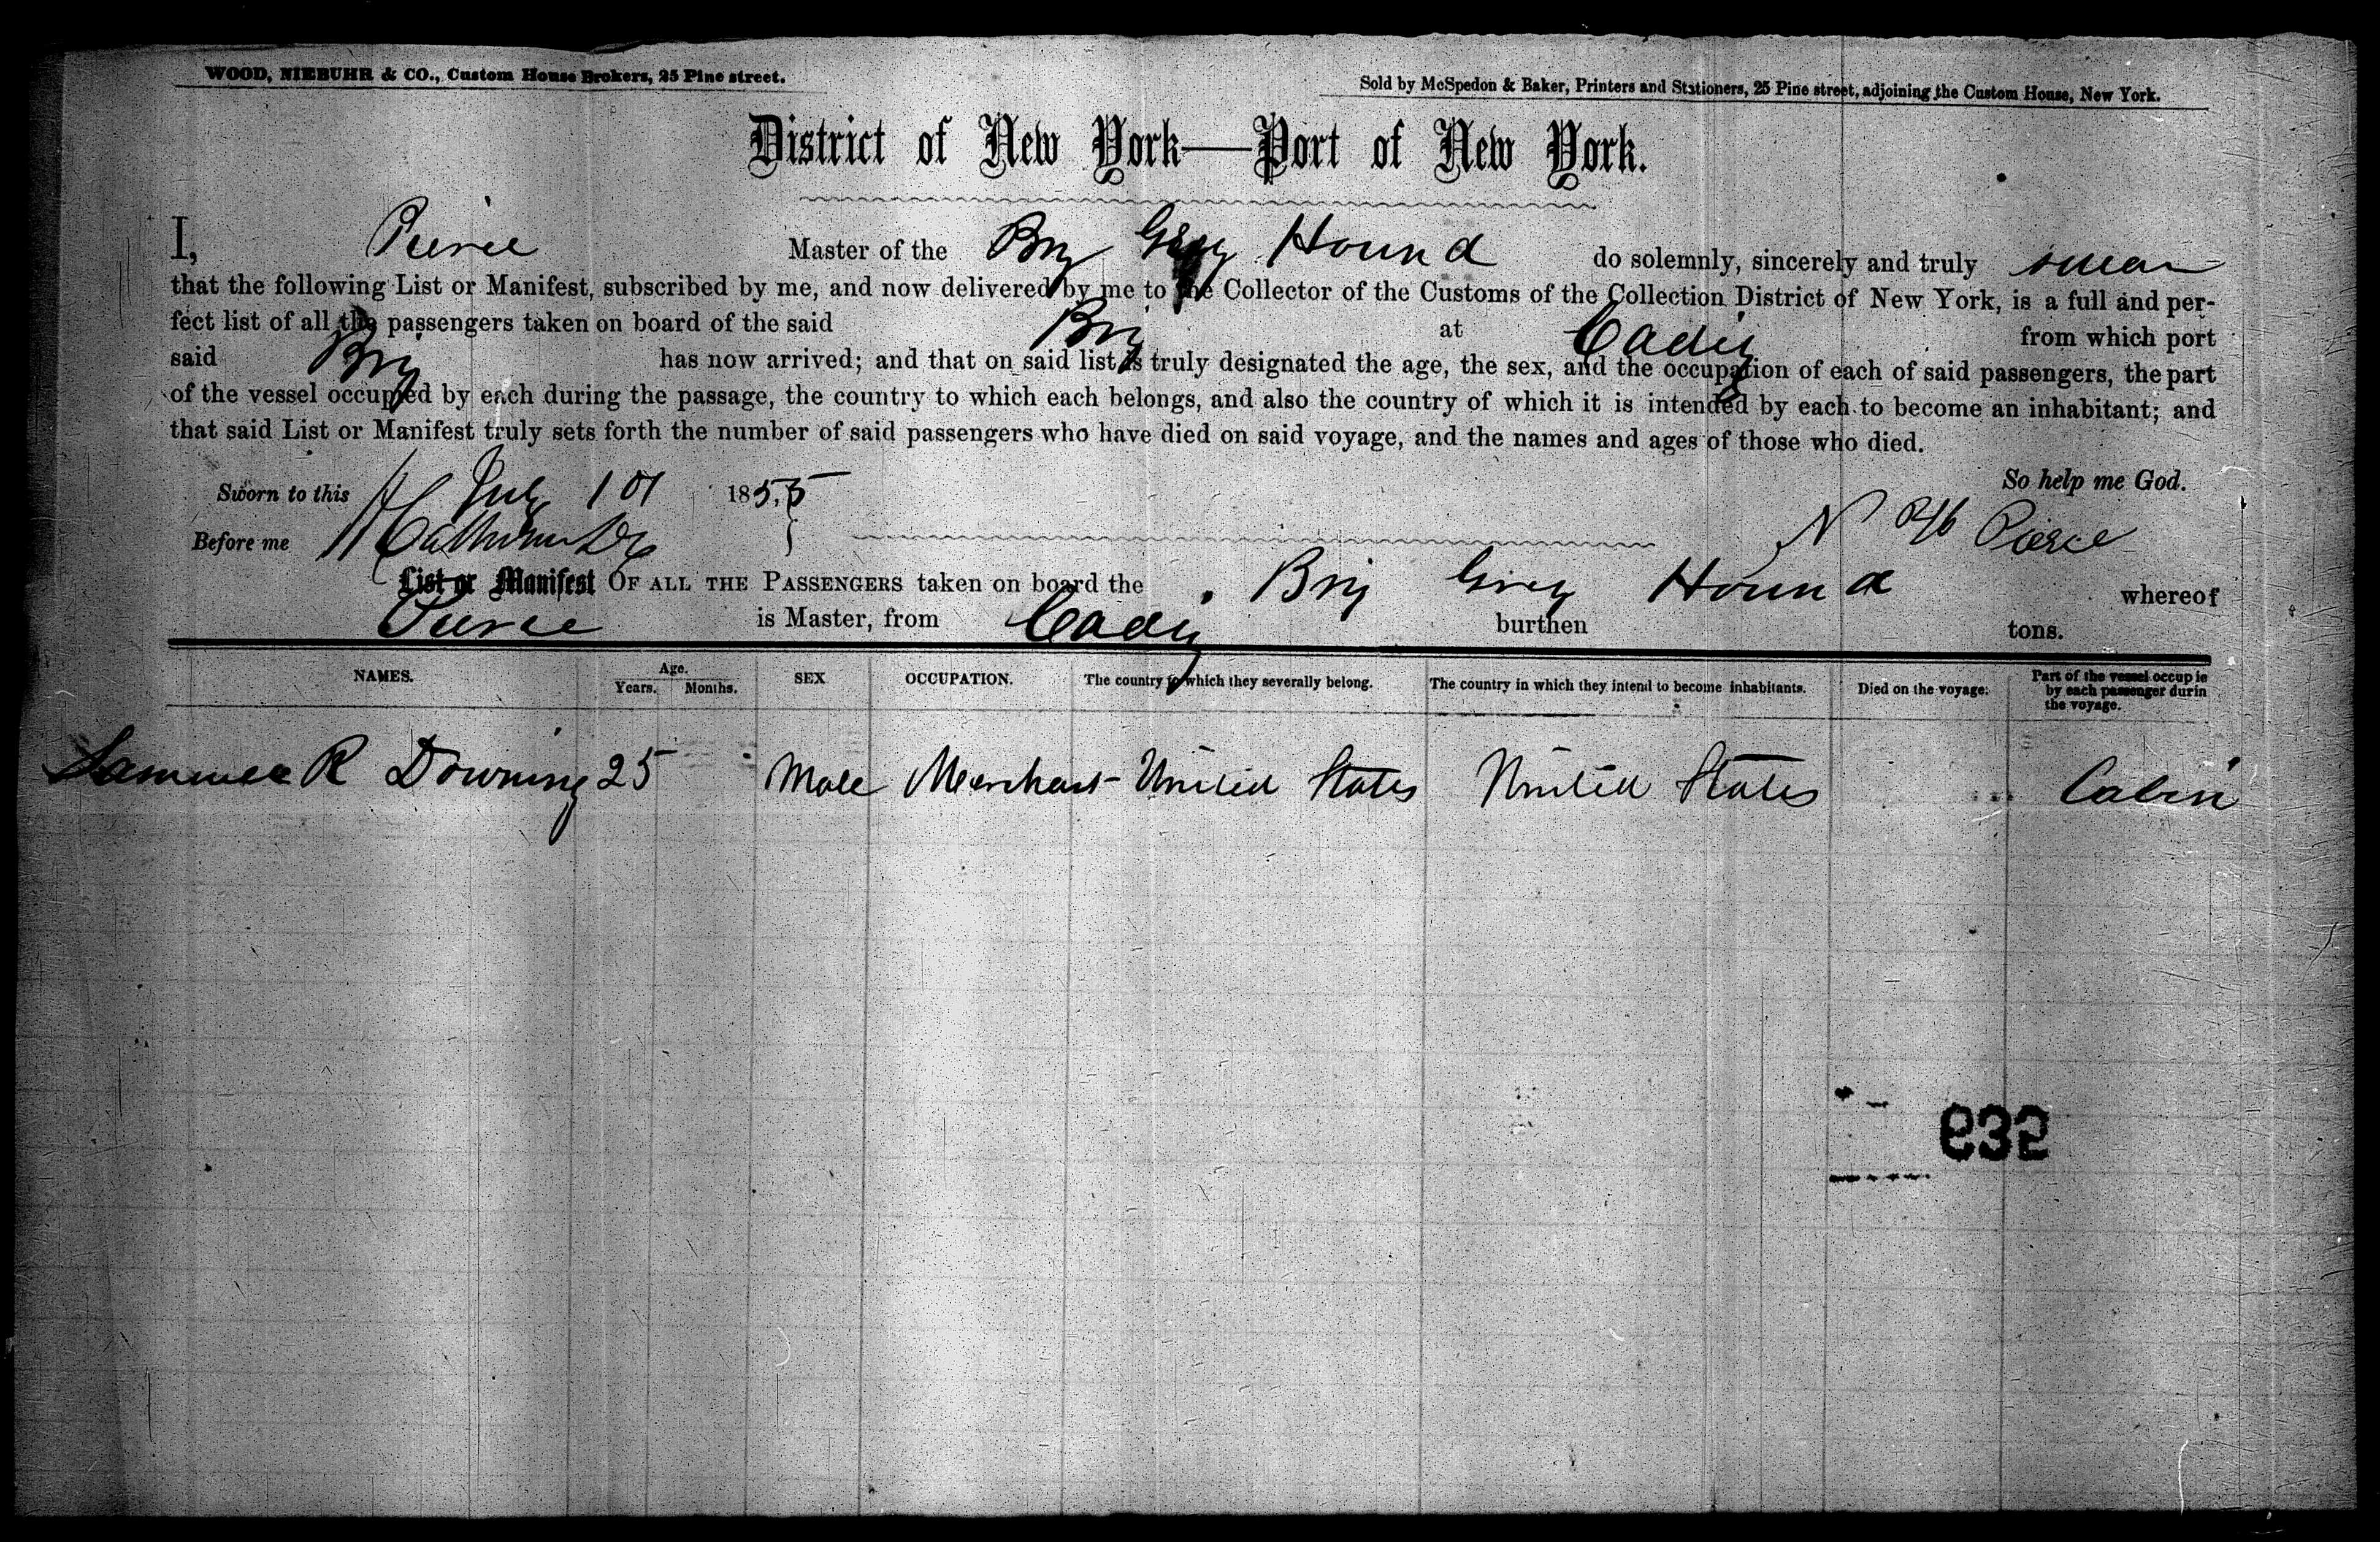 WOOD, NIEBUHR & CO., Custom House Brokers, 25 Pine street.
Sold by McSpedon & Baker, Printers and Stationers, 25 Pine street, adjoining the Custom House, New York.
District of New York—Port of New York.
I, Pierce Master of the Brig Grey Hound do solemnly, sincerely and truly swear
that the following List or Manifest, subscribed by me, and now delivered by me to the Collector of the Customs of the Collection District of New York, is a full and per-
fect list of all the passengers taken on board of the said Brig at Cadiz from which port
said Brig has now arrived; and that on said list is truly designated the age, the sex, and the occupation of each of said passengers, the part
of the vessel occupied by each during the passage, the country to which each belongs, and also the country of which it is intended by each to become an inhabitant; and
that said List or Manifest truly sets forth the number of said passengers who have died on said voyage, and the names and ages of those who died.
Sworn to this July 1855 So help me God.
Before me N Pierce
List or Manifest OF ALL THE PASSENGERS taken on board the Brig Grey Hound whereof
Pierce is Master, from Cadiz burthen tons.
NAMES. Age. Years. Months. SEX OCCUPATION. The country to which they severally belong. The country in which they intend to become inhabitants. Died on the voyage: Part of the vessel occupie by each passenger durin the voyage.
R Downing 25 Male Merchant United States United States Cabin
932